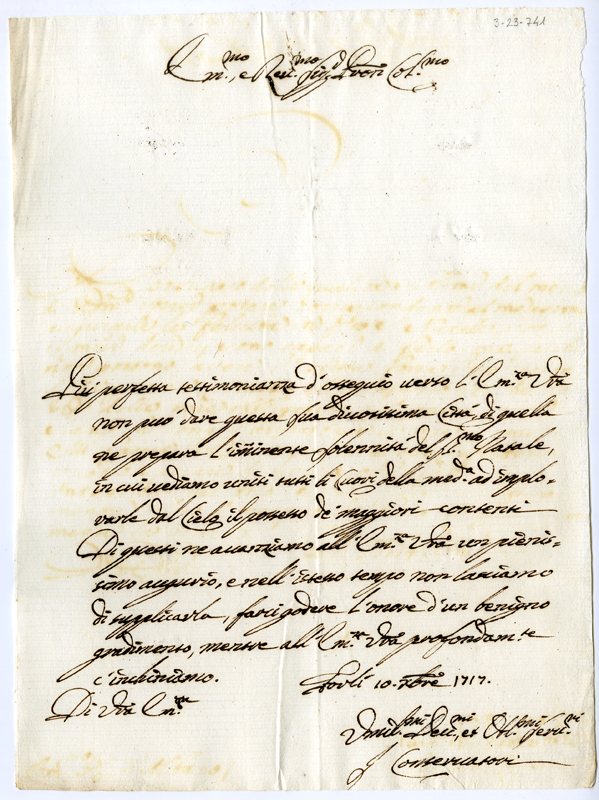 3-23-741
Em.mo, e Reu.mo Sig.r Pron Col.mo
Più perfetta testimonianza d'ossequio uerso l'Em.za Vrã
non può dare questa sua diuotissima Città, di quella
ne prepara l'iminente solennità del S.mo Natale,
in cui uediamo uniti tutti li Cuori della med.a ad implo-
rarle dal Cielo il possesso de' maggiori contenti
Di questi ne auanziamo all'Em.za Vrã un pienis-
simo augurio, e nell'istesso tempo non lasciamo
di supplicarla, farci godere l'onore d'un benigno
gradimento, mentre all'Em.za Vrã profondam.te
c'inchiniamo. Forlì 10. Xbre 1717.
Di Vrã Em.za
Vmil.mi Deu.mi, et Obl.mi Seru.ri
Conseruatori